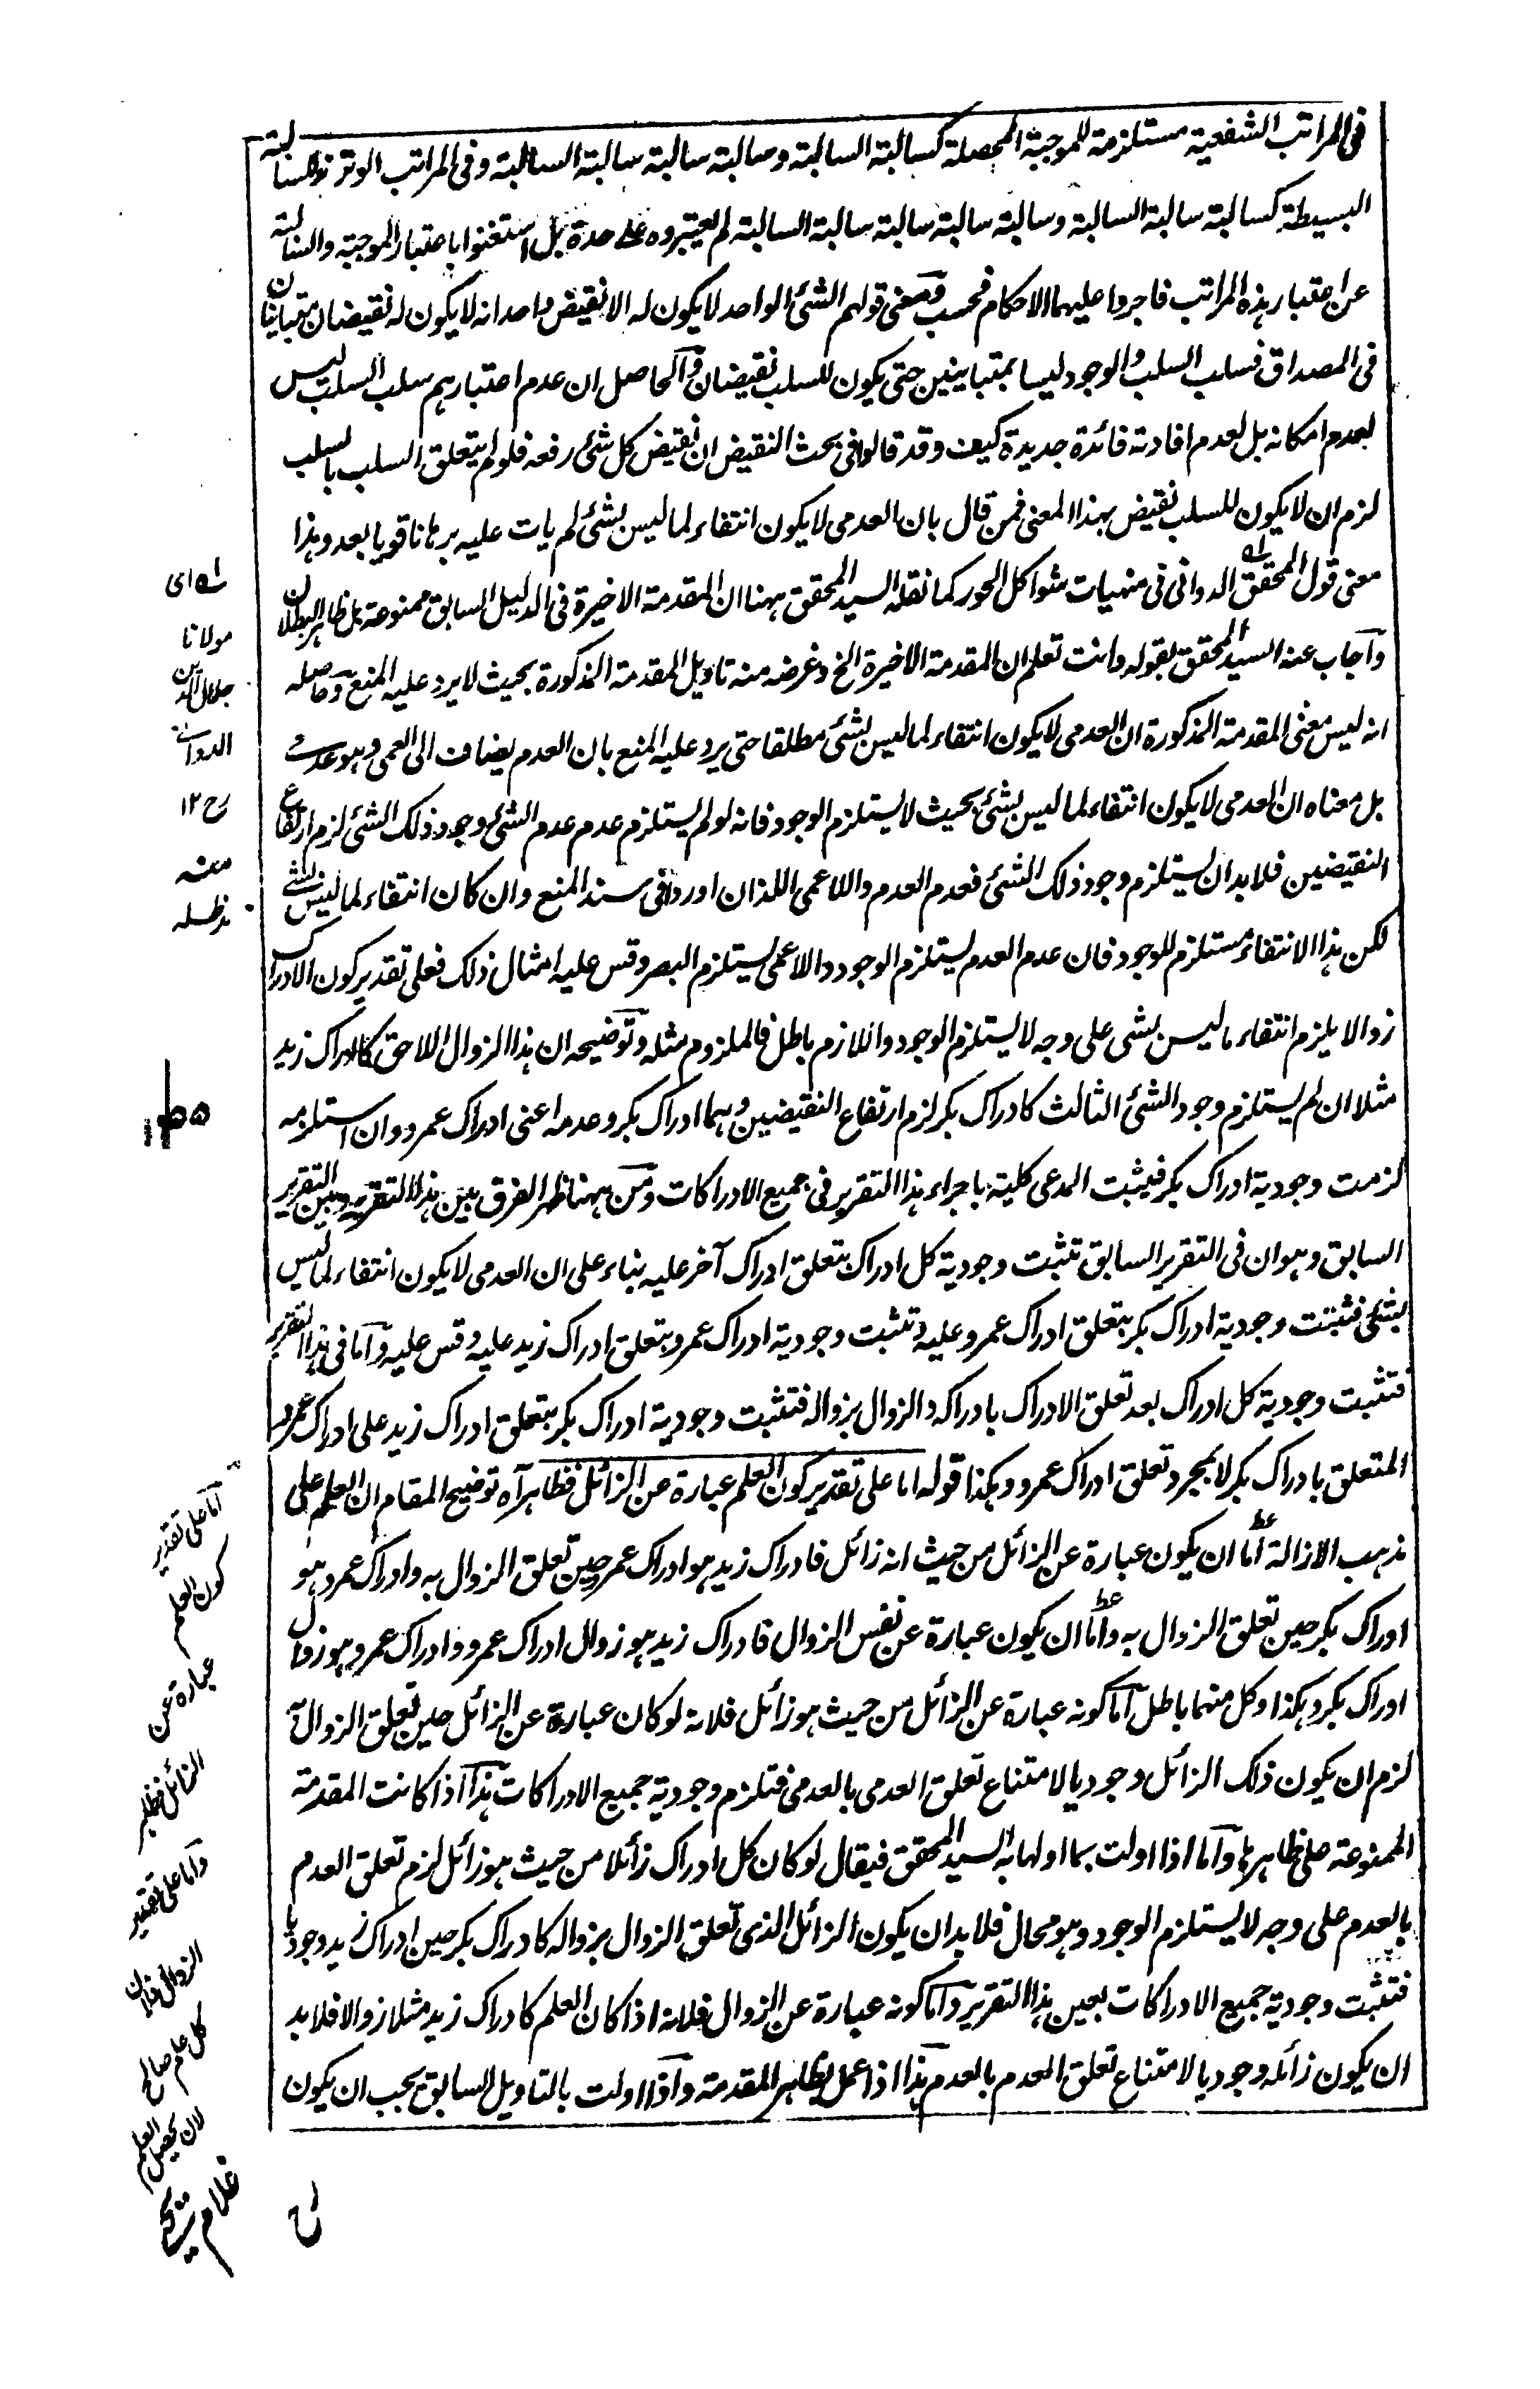 فى المراتب الشفعية مستلزمة للموجبة المحصلة كسالبة السالبة وسالبة سالبة سالبة السالبة وفى المراتب الوترية للسالبة
البسيطة كسالبة سالبة السالبة وسالبة سالبة سالبة سالبة السالبة لم يعتبروه على حدة بل استغنوا باعتبار الموجبة والسالبة
عن اعتبار هذه المراتب فاجروا عليهما الاحكام فحسب ومعنى قولهم الشئ الواحد لا يكون له الا نقيض واحد انه لا يكون له نقيضان متباينان
فى المصداق فسلب السلب والوجود ليسا بمتباينين حتى يكون للسلب نقيضان والحاصل ان عدم اعتبارهم سلب السلب ليس
لعدم امكانه بل لعدم افادته فائدة جديدة كيف وقد قالوا فى بحث النقيض ان نقيض كل شئ رفعه فلو لم يتعلق السلب بالسلب
لزم ان لا يكون للسلب نقيض بهذا المعنى فمن قال بان العدمى لا يكون انتفاء لما ليس بشئ لم يات عليه برهانا قويا بعد وهذا
معنى قول المحقق الدوانى فى منهيات شواكل الحور كما نقله السيد المحقق ههنا ان المقدمة الاخيرة فى الدليل السابق ممنوعة بل ظاهر البطلان
وآجاب عنه السيد المحقق بقوله وانت تعلم ان المقدمة الاخيرة الخ وغرضه منه تاويل المقدمة المذكورة بحيث لا يرد عليه المنع وحاصله
انه ليس معنى المقدمة المذكورة ان العدمى لا يكون انتفاء لما ليس بشئ مطلقا حتى يرد عليه المنع بان العدم يضاف الى العمى وهو عدمى
بل معناه ان العدمى لا يكون انتفاء لما ليس بشئ بحيث لا يستلزم الوجود فانه لو لم يستلزم عدم عدم الشئ وجود ذلك الشئ لزم ارتفاع
النقيضين فلا بد ان يستلزم وجود ذلك الشئ فعدم العدم واللاعمى اللذان اوردا فى سند المنع وان كان انتفاء لما ليس بشئ
لكن هذا الانتفاء مستلزم للوجود فان عدم العدم يستلزم الوجود واللاعمى يستلزم البصر وقس عليه امثال ذلك فعلى تقدير كون الادراك
زوالا يلزم انتفاء ما ليس بشى على وجه لا يستلزم الوجود واللازم باطل فالملزوم مثله وتوضيحه ان هذا الزوال اللاحق كادراك زيد
مثلا ان لم يستلزم وجود الشئ الثالث كادراك بكر لزم ارتفاع النقيضين وهما ادراك بكر وعدمه اعنى ادراك عمرو وان استلزمه
لزمت وجودية ادراك بكر فيثبت المدعى كلية باجراء هذا التقرير فى جميع الادراكات ومن ههنا ظهر الفرق بين هذا التقرير وبين التقرير
السابق وهو ان فى التقرير السابق تثبت وجودية كل ادراك بتعلق ادراك آخر عليه بناء على ان العدمى لا يكون انتفاء لما ليس
بشئ فثبتت وجودية ادراك بكر بتعلق ادراك عمرو عليه وتثبت وجودية ادراك عمرو بتعلق ادراك زيد عليه وقس عليه وآما فى هذا التقرير
فتثبت وجودية كل ادراك بعد تعلق الادراك بادراكه والزوال بزواله فتثبت وجودية ادراك بكر بتعلق ادراك زيد على ادراك عمرو
المتعلق بادراك بكر لا بمجرد تعلق ادراك عمرو وهكذا قوله اما على تقدير كون العلم عبارة عن الزائل فظاهر آه توضيح المقام ان العلم على
مذهب الازالة اما ان يكون عبارة عن الزائل من حيث انه زائل فادراك زيد هو ادراك عمرو حين تعلق الزوال به وادراك عمرو هو
ادراك بكر حين تعلق الزوال به واما ان يكون عبارة عن نفس الزوال فادراك زيد هو زوال ادراك عمرو وادراك عمرو هو زوال
ادراك بكر وهكذا وكل منهما باطل آما كونه عبارة عن الزائل من حيث هو زائل فلانه لو كان عبارة عن الزائل حين تعلق الزوال به
لزم ان يكون ذلك الزائل وجوديا لامتناع تعلق العدمى بالعدمى فتلزم وجودية جميع الادراكات هذا اذا كانت المقدمة
الممنوعة على ظاهرها وآما اذا اولت بما اولها به السيد المحقق فيقال لو كان كل ادراك زائلا من حيث هو زائل لزم تعلق العدم
بالعدم على وجه لا يستلزم الوجود وهو محال فلا بد ان يكون الزائل الذى تعلق الزوال بزواله كادراك بكر حين ادراك زيد وجوديا
فتثبت وجودية جميع الادراكات بعين هذا التقرير وآما كونه عبارة عن الزوال فلانه اذا كان العلم كادراك زيد مثلا زوالا فلا بد
ان يكون زائله وجوديا لامتناع تعلق العدم بالعدم هذا اذا عمل بظاهر المقدمة واذا اولت بالتاويل السابق يجب ان يكون
اى
مولانا
جلال الدين
الدوانى
رح ١٢
منه
مدظله
اما على تقدير
كون العلم
عبارة عن
الزائل فظاهر
واما على تقدير
الزوال فلان
كل علم صالح
لان يحصل العلم
غلام يحيى